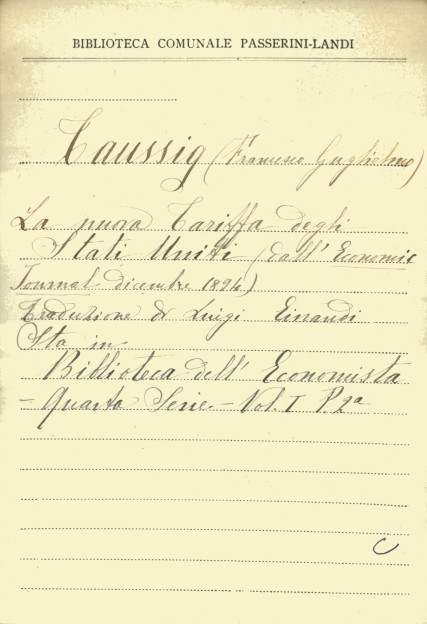 BIBLIOTECA COMUNALE PASSERINI-LANDI
Taussig (Francesco Guglielmo)
La nuova Tariffa degli
Stati Uniti (dall' Economic
Journal dicembre 1894)
Traduzione di Luigi Einaudi
Sta in
Biblioteca dell' Economista
- Quarta Serie - Vol. I P 2a
C